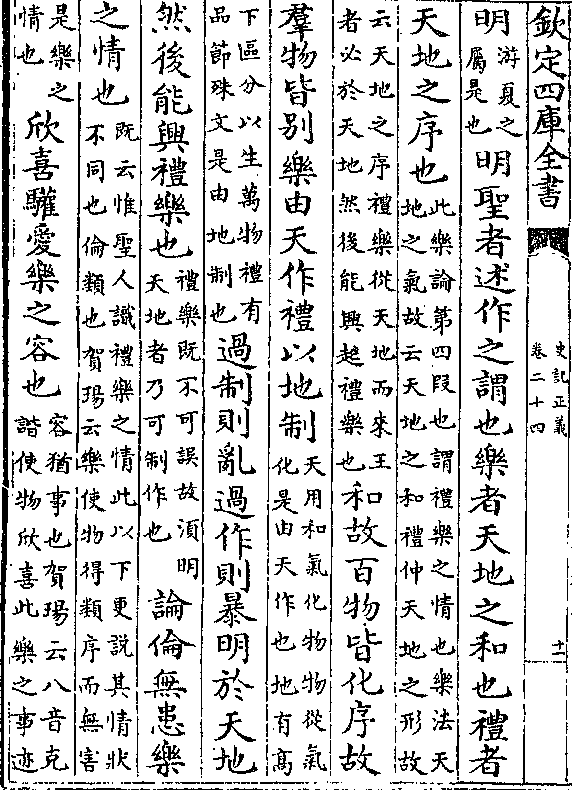 欽定四庫全書
史記正義
卷二十四
十一
明游夏之屬是也明聖者述作之謂也樂者天地之和也禮者
天地之序也此樂論第四段也謂禮樂之情也樂法天地之氣故云天地之和禮仲天地之形故
云天地之序禮樂從天地而來王者必於天地然後能興起禮樂也和故百物皆化序故
羣物皆别樂由天作禮以地制天用和氣化物物從氣化是由天作也地有高
下區分以生萬物禮有品節殊文是由地制也過制則亂過作則暴明於天地
然後能興禮樂也禮樂既不可誤故湏明天地者乃可制作也論倫無患樂
之情也既云惟聖人識禮樂之情此以下更説其情狀不同也倫類也賀瑒云樂使物得類序而無害
是樂之情也欣喜驩愛樂之容也容猶事也賀瑒云八音克諧使物欣喜此樂之事迹